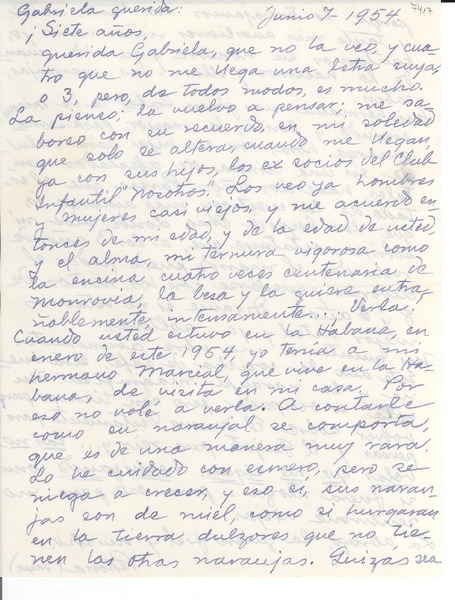 Gabriela querida: Junio 7-1954. 7417
¡Siete años,
querida Gabriela, que no la veo, y cua
tro que no me llega una letra suya,
o 3, pero, de todos modos, es mucho.
La pienso; la vuelvo a pensar; me sa-
boreo con su recuerdo, en mi soledad
que solo se altera, cuando me llegan,
ya con sus hijos, los ex socios del Club
Infantil "Nosotros". Los veo ya hombres
y mujeres casi viejos, y me acuerdo en
tonces de mi edad, y de la edad de usted,
y el alma, mi ternura vigorosa como
la encina cuatro veces centenaria de
Monrovia, la besa y la quiere entra
ñablemente, intensamente... Verla!
Cuando usted estuvo en la Habana, en
enero de este 1954, yo tenía a mi
hermano Marcial, que vive en la Ha-
bana, de visita en mi casa. Por
eso no volé a verla. A contarle
como su naranjal se comporta,
que es de una manera muy rara.
Lo he cuidado con esmero, pero se
niega a crecer, y eso sí, sus naran-
jas son de miel, como si hurgaran
en la tierra dulzores que no tie-
nen las otras naranjas. Quizás sea